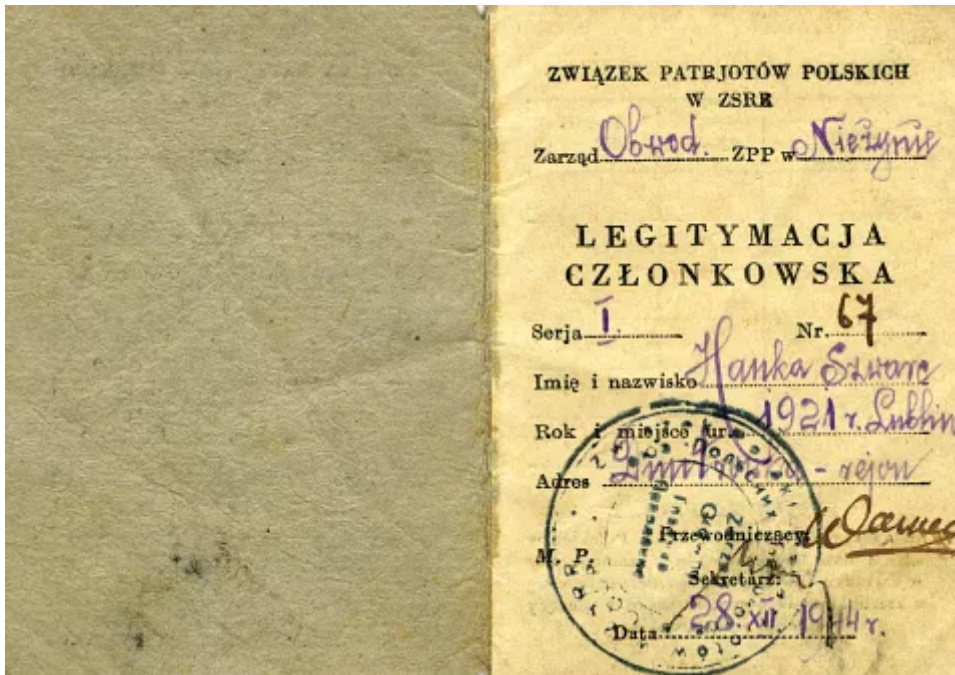 ZWIĄZEK PATRJOTÓW POLSKICH
W ZSRR
Zarząd Obwod. ZPP w Nieżynie
LEGITYMACJA
CZŁONKOWSKA
Serja I Nr. 67
Imię i nazwisko Hanka Szwarc
Rok i miejsce ur. 1921 r. Lublin
Adres - rejon
Przewodniczący:
M. P.
Sekretarz:
Data 28.XII 1944 r.